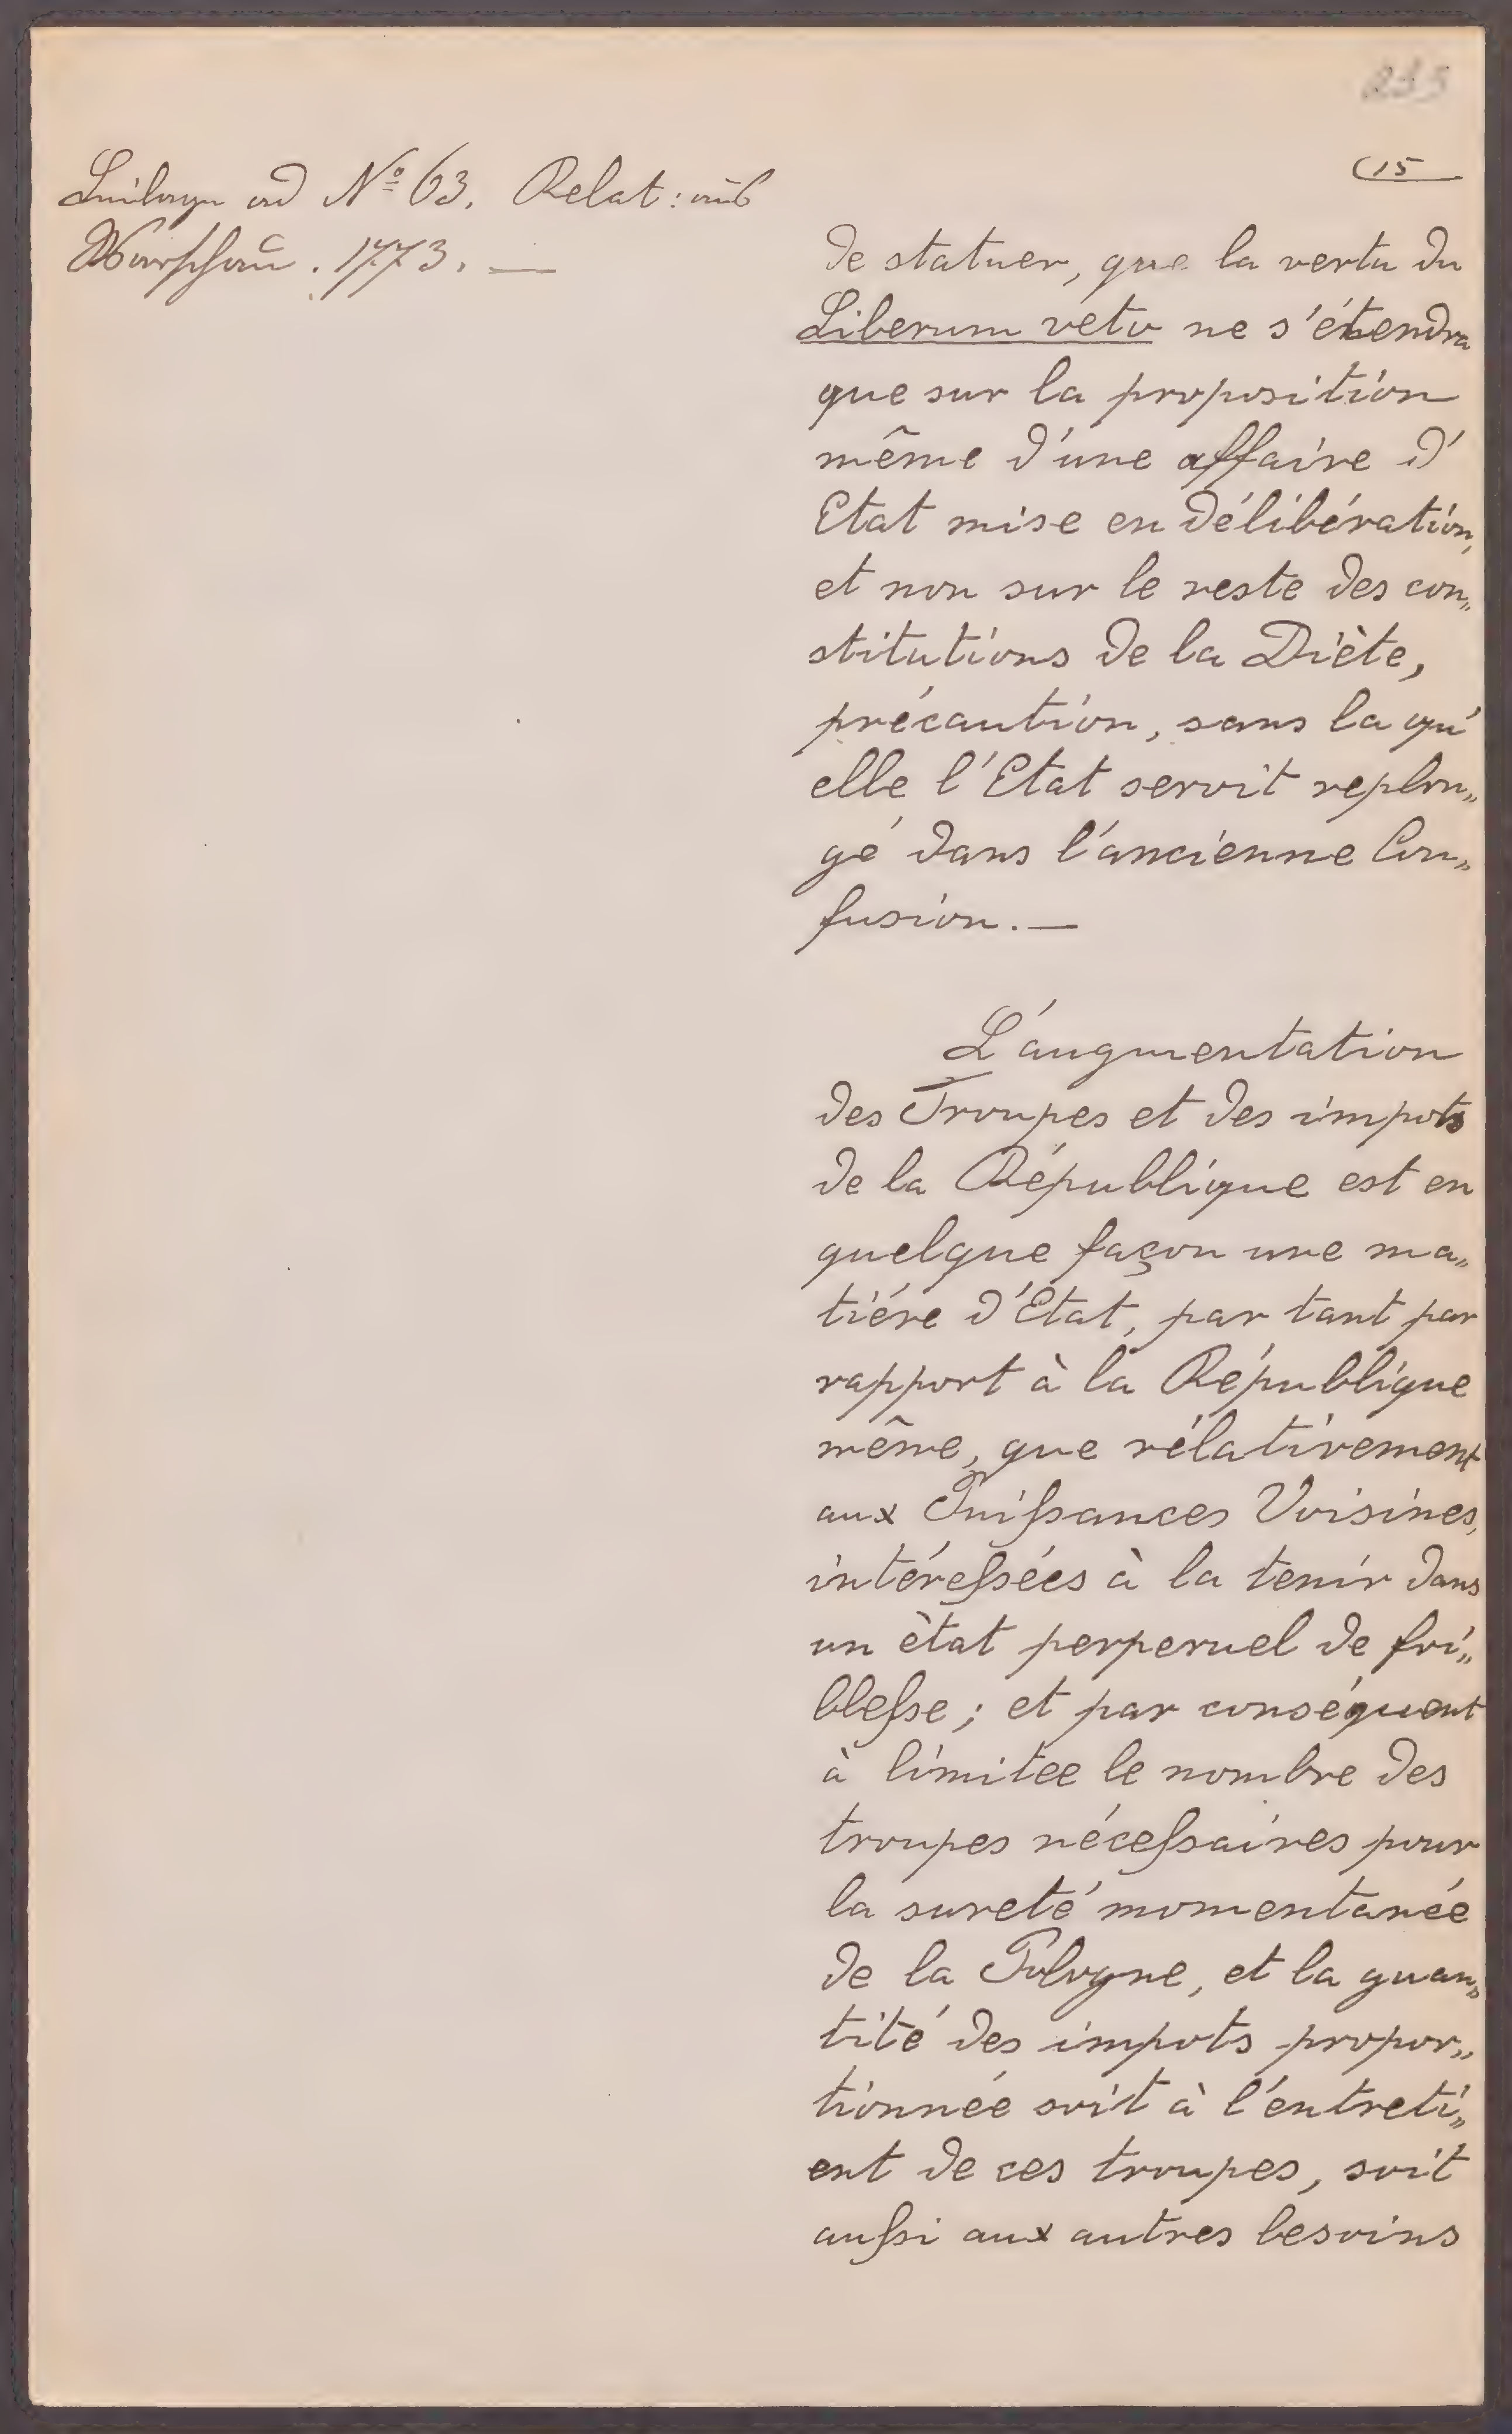 235
(15
Beilage ad Nº 63. Relat: aus
Warschau. 1773. —
de statuer, que la vertu du
Liberum veto ne s'étendra
que sur la proposition
même d'une affaire d'
Etat mise en délibération,
et non sur le reste des con„
stitutions de la Diète,
précaution, sans la qu'
elle l'Etat seroit replon„
gé dans l'ancienne Con„
fusion. —
L'augmentation
des Troupes et des impots
de la République est en
quelque façon une ma„
tiére d'Etat, par tant par
rapport à la République
même, que rélativement
aux Puissances Voisines,
intéressées à la tenir dans
un ètat perperuel de foi„
blesse; et par conséquent
à limitee le nombre des
troupes nécessaires pour
la sureté momentanée
de la Pologne, et la quan„
tité des impots propor„
tionnée soit à l'entreti„
ent de ces troupes, soit
aussi aux autres besoins